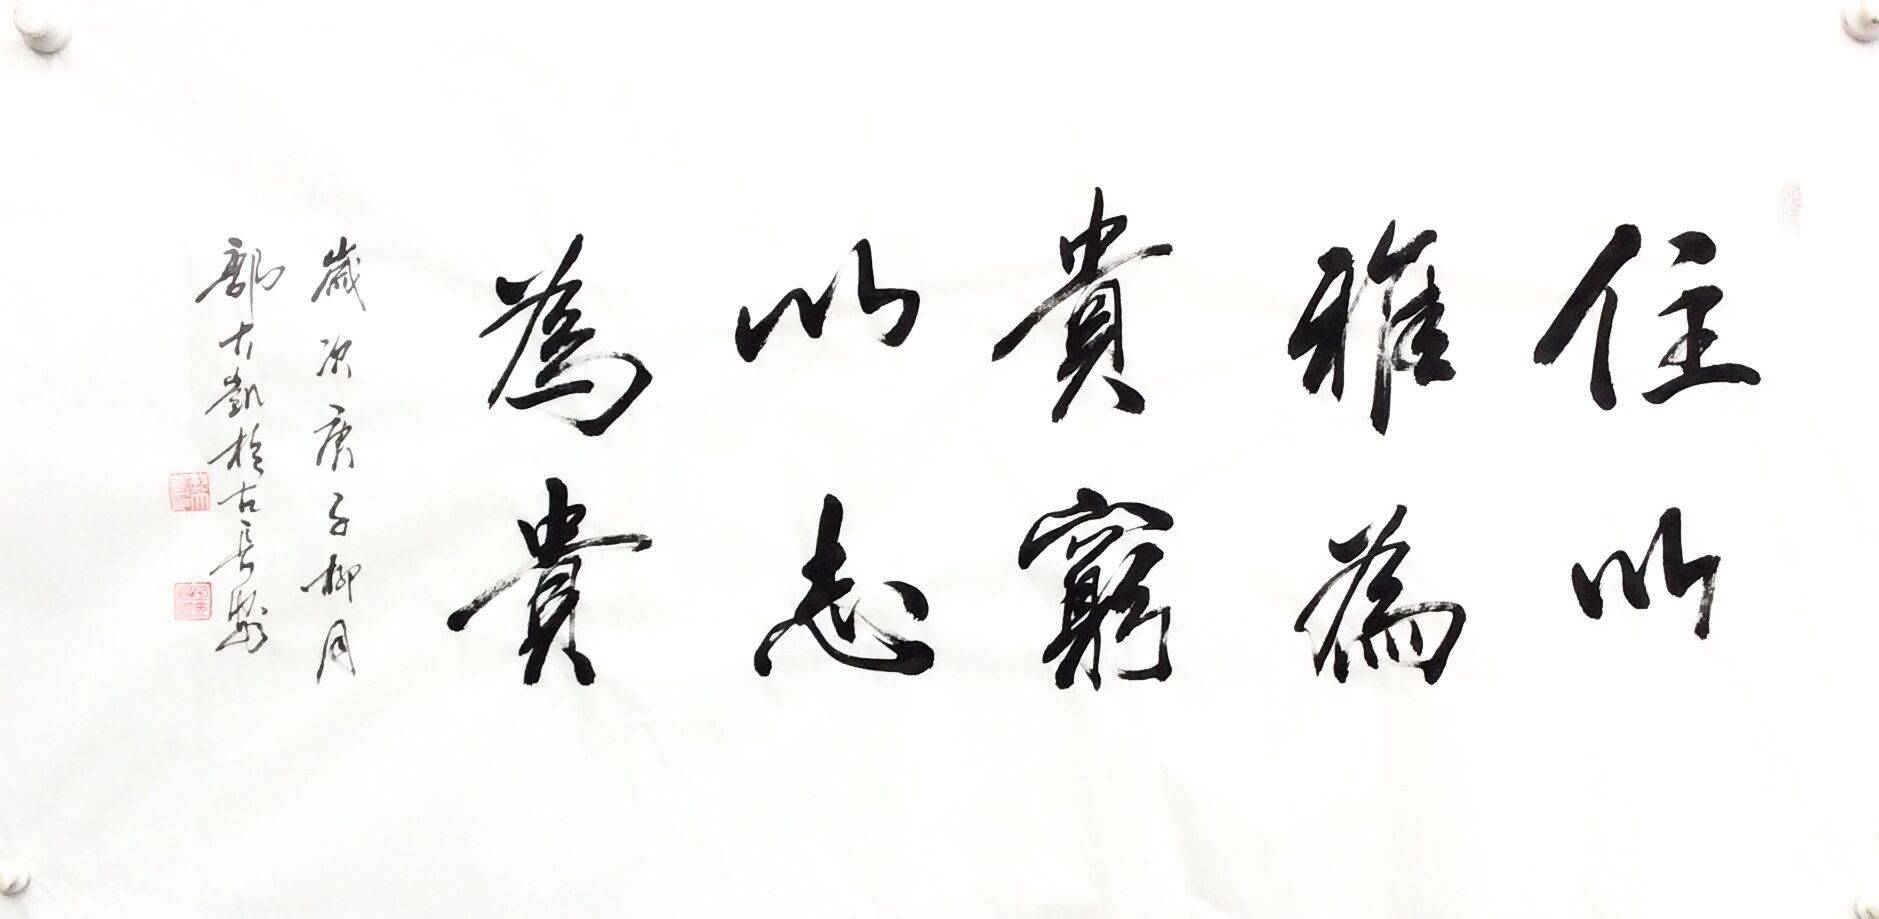 住以
雅為
貴窮
以志
為貴
歲次庚子柳月
郭大凱於古長安